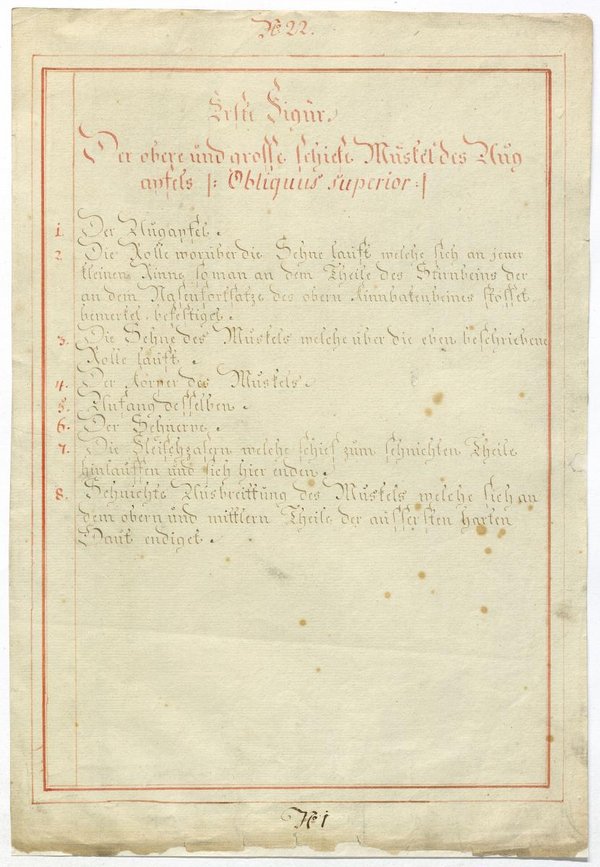 No 22.
Erste Figur.
Der obere und grosse schiefe Muskel des Aug
apfels |: Obliquus superior :|
1. Der Augapfel.
2. Die Rolle worüber die Sehne lauft welche sich an jener
kleinen Rinne so man an dem Theile des Stirnbeins der
an dem Nasenfortsatze des obern Kinnbakenbeines stösset
bemerket befestiget.
3. Die Sehne des Muskels welche über die eben beschriebene
Rolle lauft.
4. Der Körper des Muskels.
5. Anfang desselben.
6. Der Sehnerve.
7. Die Fleischzasern welche schief zum sehnichten Theile
hinlauffen und sich hier enden.
8. Sehnichte Ausbreittung des Muskels welche sich an
dem obern und mittlern Theile der äussersten harten
Haut endiget.
No 1